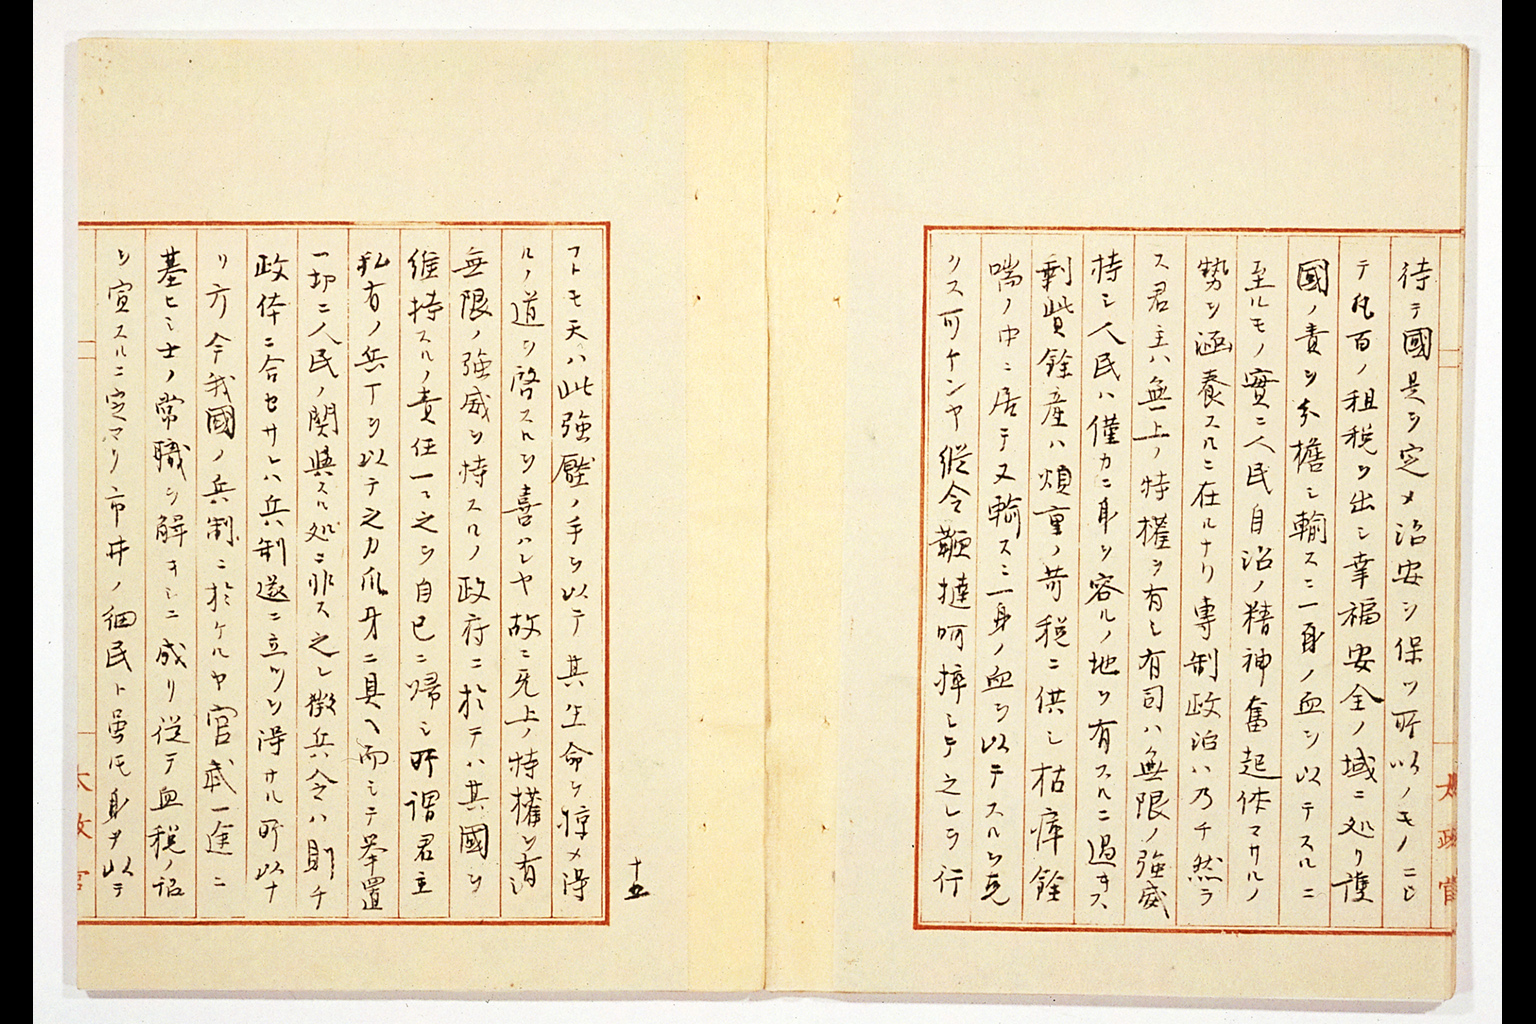 待テ國是ヲ定メ治安ヲ保ツ所以ノモノニシ
テ凡百ノ租税ヲ出シ幸福安全ノ域ニ処リ護
國ノ責ヲ分擔シ輸スニ一身ノ血ヲ以テスルニ
至ルモノ實ニ人民自治ノ精神奮起作マサルノ
勢ヲ涵養スルニ在ルナリ專制政治ハ乃チ然ラ
ス君主ハ無上ノ特權ヲ有シ有司ハ無限ノ強威
ヲ恃ミ人民ハ僅カニ身ヲ容ルノ地ヲ有スルニ過キス
剰貲餘産ハ煩重ノ苛税ニ供シ枯瘁餘
喘ノ中ニ居テ又輸スニ一身ノ血ヲ以テスルヲ免
レス可ケンヤ縦令鞭撻呵捽シテ之レヲ行
フトモ天ハ此強壓ノ手ヲ以テ其生命ヲ殞メ得
ルノ道ヲ啓スルヲ喜ハンヤ故ニ无上ノ特權ヲ有シ
無限ノ強威ヲ恃スルノ政府ニ於テハ其國ヲ
維持スルノ責任一ニ之ヲ自已ニ帰シ所謂君主
私有ノ兵丁ヲ以テ之カ爪牙ニ具ヘ而シテ挙置
一切ニ人民ノ関與スル処ニ非ス之レ徴兵令ハ則チ
政体ニ合セサレハ兵制遂ニ立ツヲ得サル所以ナ
リ方今我國ノ兵制ニ於ケルヤ官武一途ニ
基ヒシ士ノ常職ヲ解キシニ成リ従テ血税ノ詔
ヲ宣スルニ定マリ市井ノ細民ト雖モ身ヲ以テ
十五
太政官
太政官